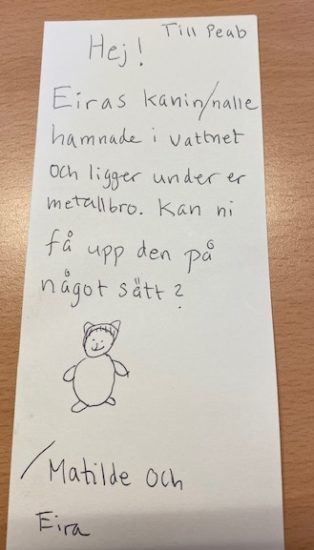 Till Peab
Hej!
Eiras kanin/nalle
hamnade i vattnet
och ligger under er
metallbro. Kan ni
få upp den på
något sätt?
/Matilde och
Eira